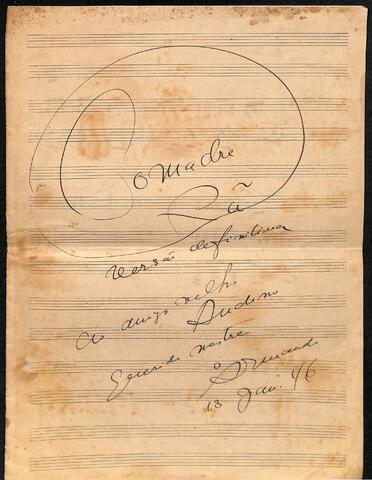 Comadre
Rã
Versão definitiva
Ao amigo velho
Andino
Querido mestre
o
Armando
13 Jan. 46